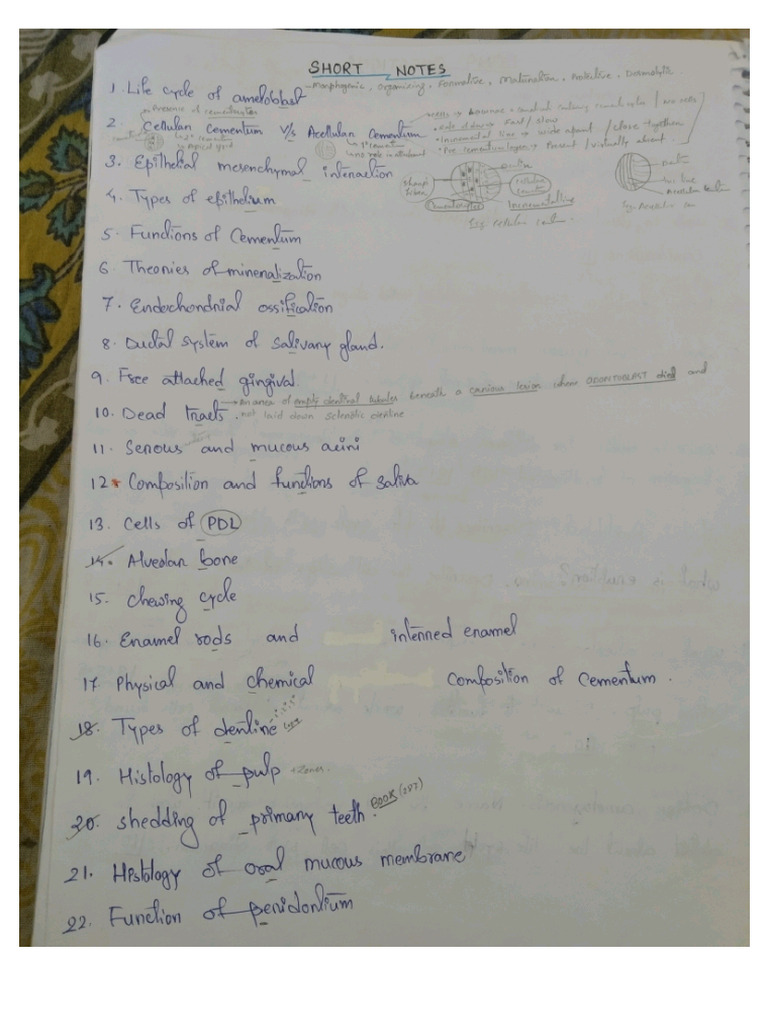 SHORT NOTES
1. Life cycle of ameloblast → Morphogenic, Organising, Formative, Maturation, Protective, Desmolytic.
Presence of cementocytes
2. Cellular Cementum V/s Acellular Cementum
• rate of dev → Fast / slow
• Incremental line → wide apart / close together
• Pre cementum layer → Present / virtually absent.
3. Epithelial mesenchymal interaction
Sharpey's fibers
Cementocytes
Cellular cementum
Incremental line
Fig: Cellular cem.
Acellular cem
Fig: Acellular cem
4. Types of epithelium
5. Functions of Cementum
6. Theories of mineralization
7. Endochondrial ossification
8. Ductal system of Salivary gland.
9. Free attached gingival.
→ An area of empty dentinal tubules beneath a carious lesion where ODONTOBLAST died and
10. Dead tracts. not laid down sclerotic dentine
11. Serous and mucous acini
12* Composition and functions of saliva
13. Cells of PDL
14. Alveolar bone
15. Chewing cycle
16. Enamel rods and interred enamel
17. Physical and chemical Composition of Cementum.
18. Types of dentine
19. Histology of pulp + Zones.
20. shedding of primary teeth. BOOK (287)
21. Histology of oral mucous membrane
22. Function of peridontium